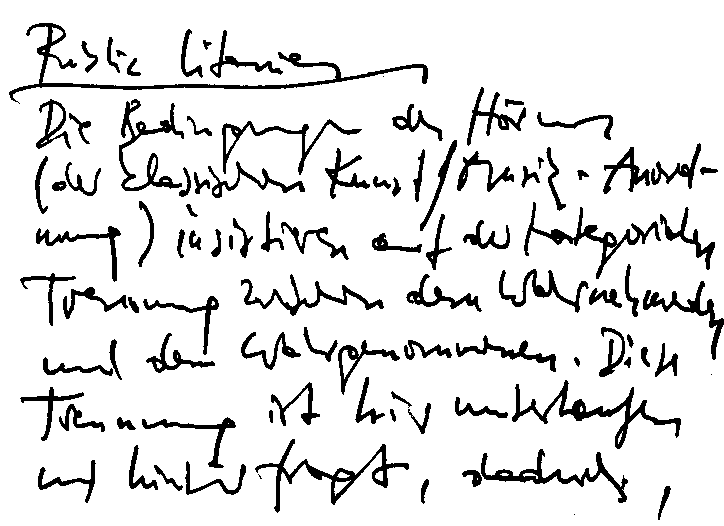 Rustic Litanies
Die Bedingungen des Hörens
(der klassischen Kunst/Musik-Anord-
nung) insistieren auf der kategorialen
Trennung zwischen dem Wahrnehmenden
und dem Wahrgenommenen. Diese
Trennung ist hier unterlaufen
und hinterfragt, dadurch,